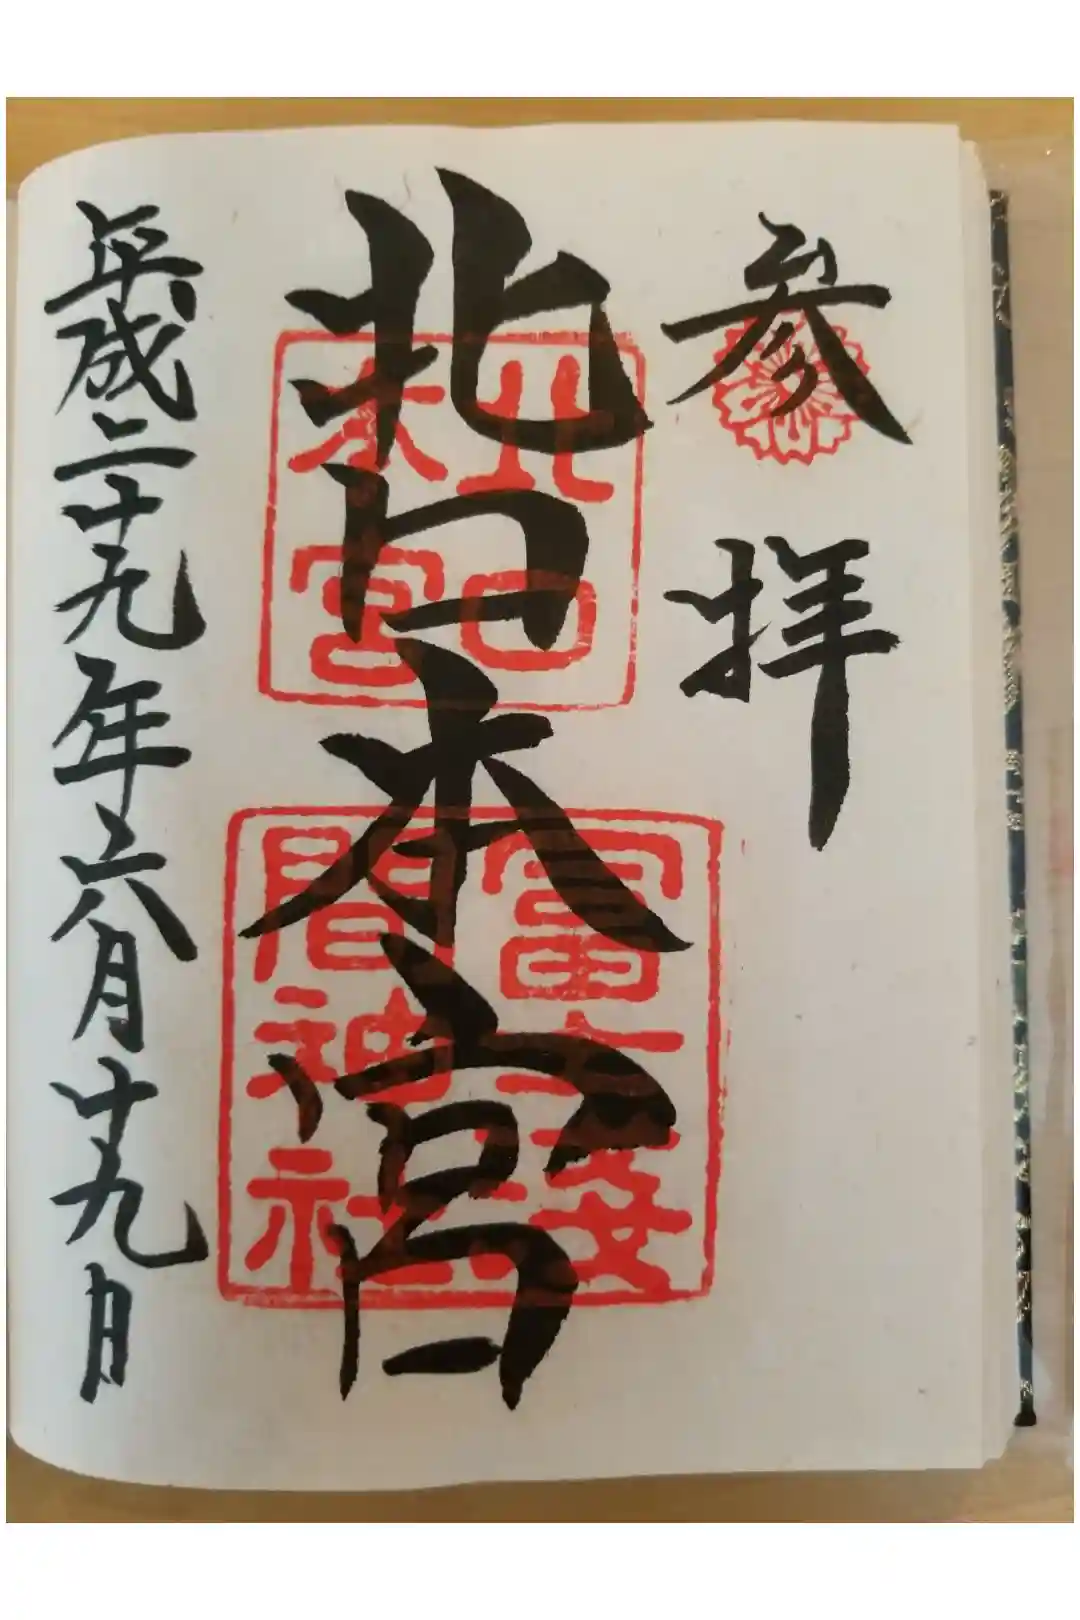 参拝
北口本宮
北口
本宮
冨士浅
間神社
平成二十九年六月十九日